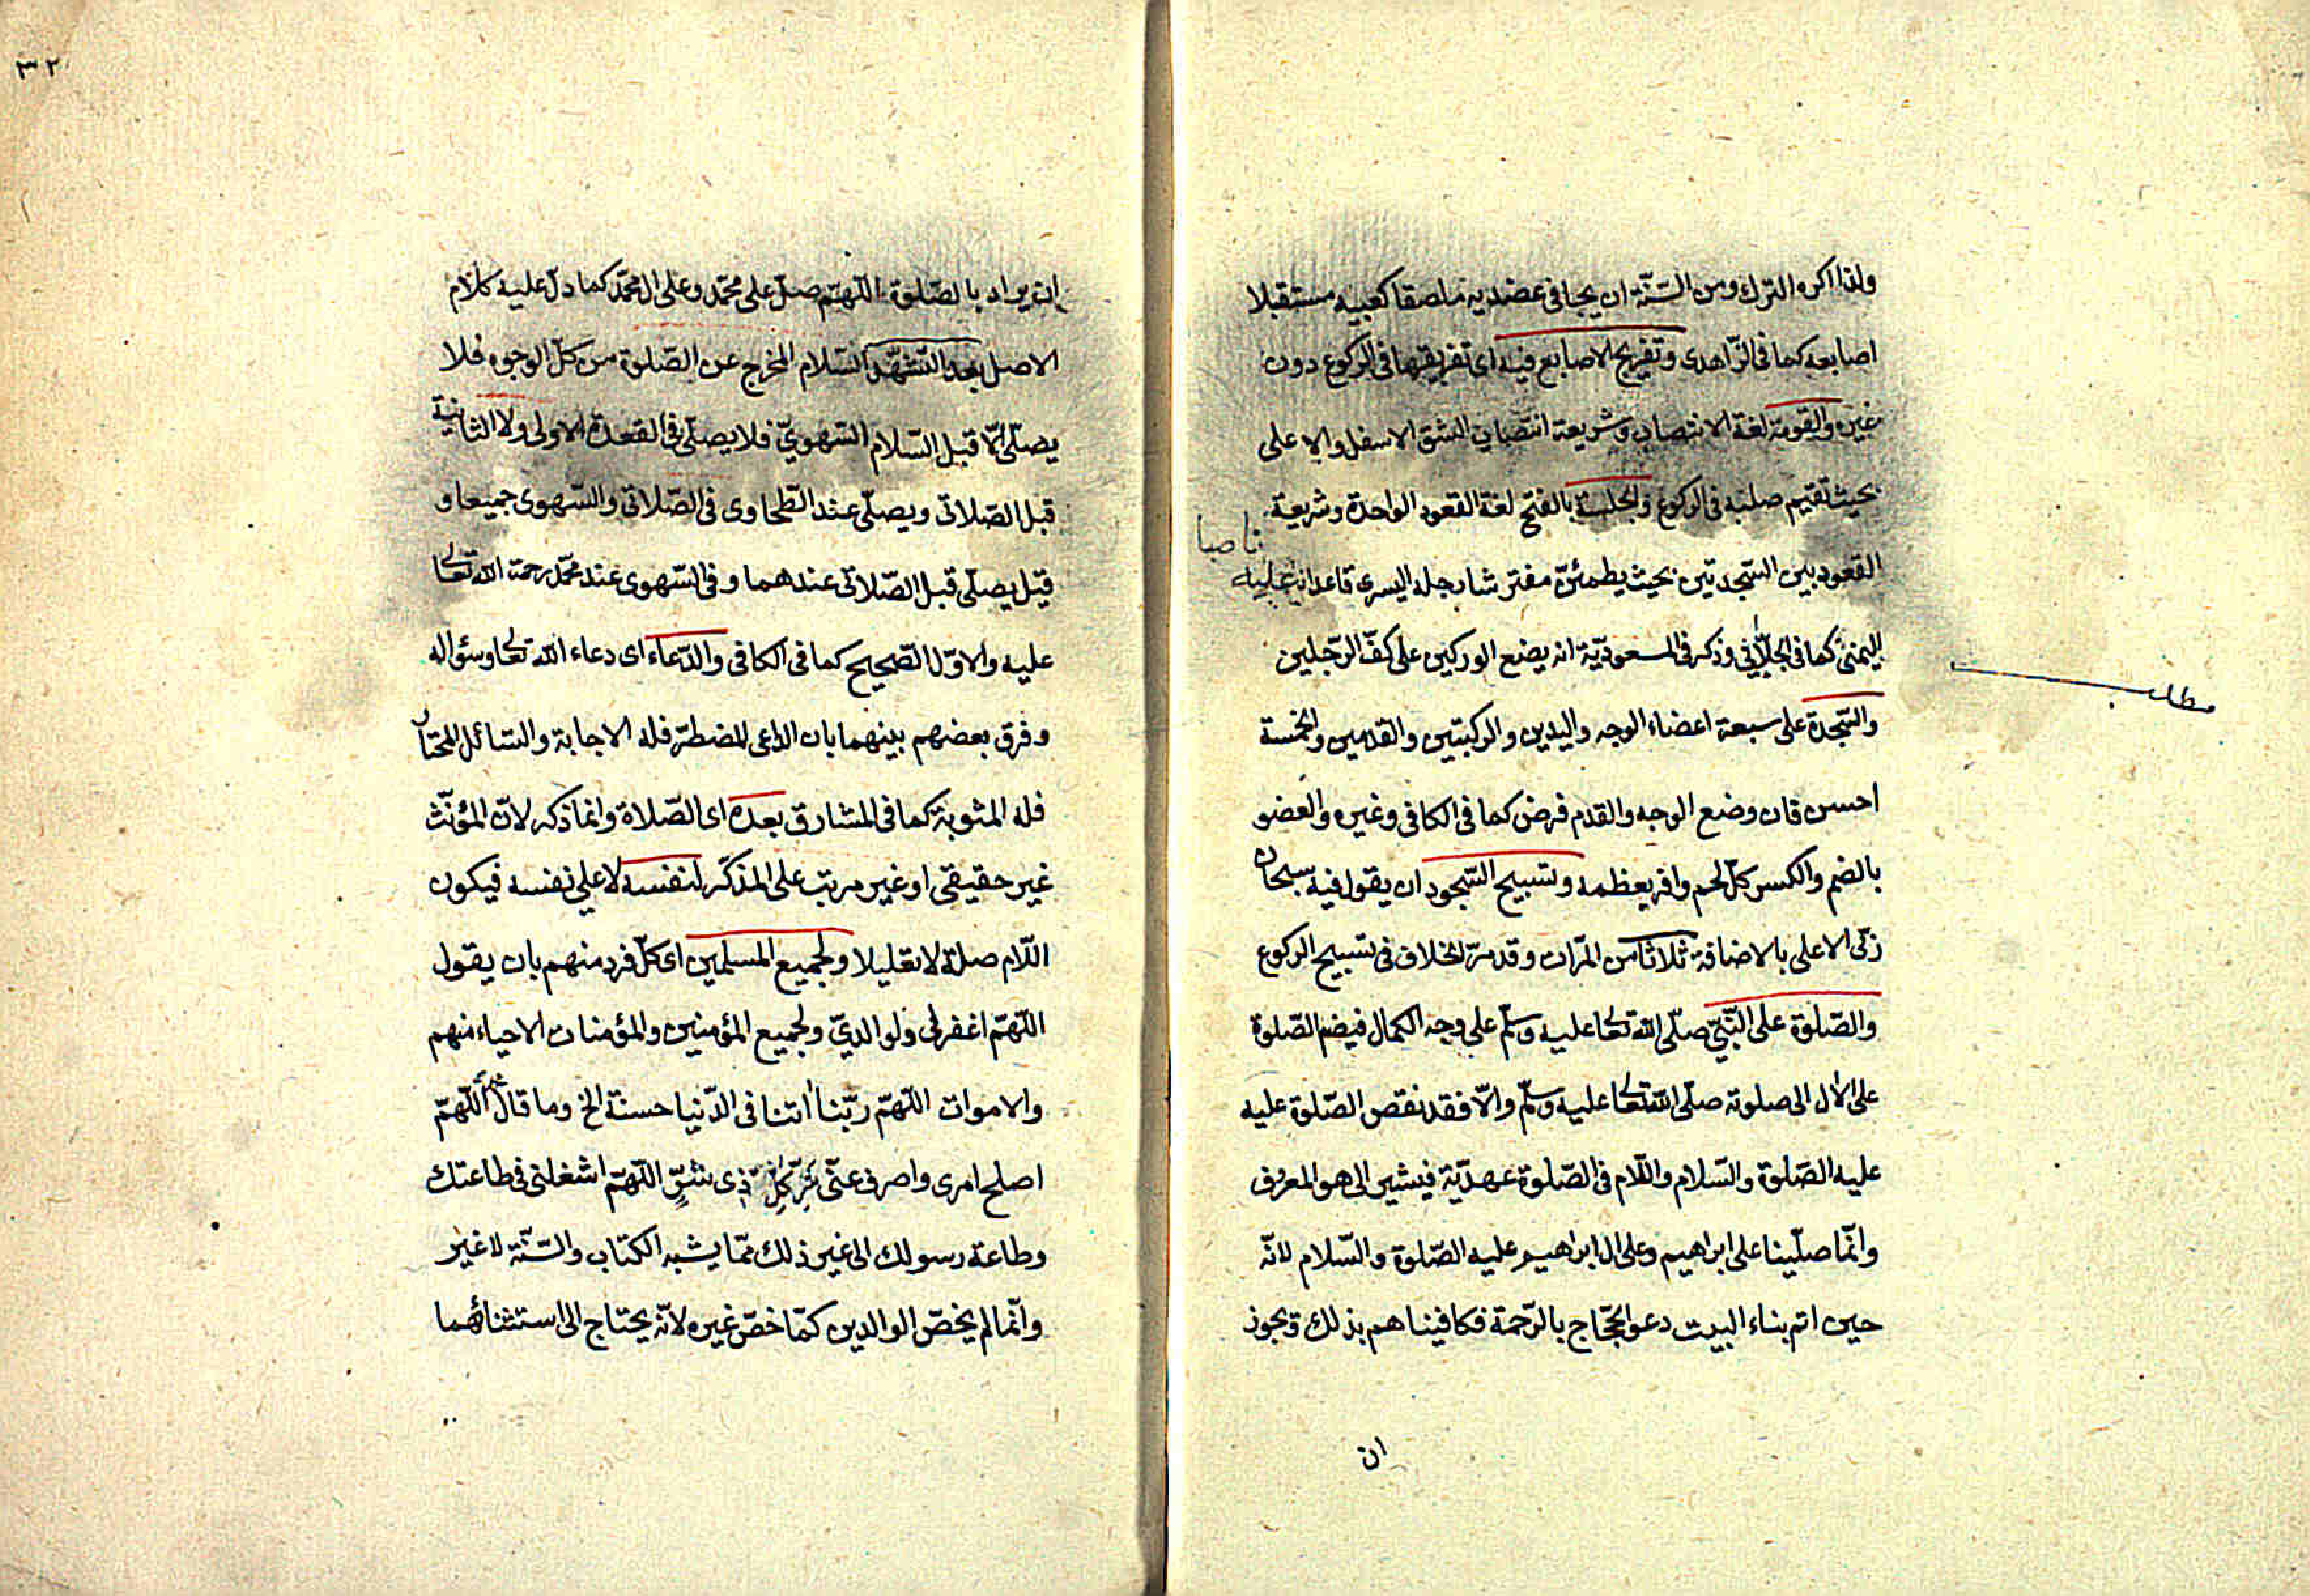 ولذا اكره الترك ومن السّنّة ان يجافى عضديه ملصقا كعبيه مستقبلا
اصابعه كما فى الزّاهدى وتفريج الاصابع فيه اى تفريقها فى الركوع دون
غيره والقومة لغة الانتصاب وشريعة انتصاب الشق الاسفل والاعلى
بحيث تقيم صلبه فى الركوع والجلسة بالفتح لغة القعود الواحدة وشريعة
القعود بين السّجدتين بحيث يطمئنّ مفترشا رجله اليسرى قاعدا عليه
ناصبا
اليمنى كما فى الجلّابى وذكر فى المسعوديّة انه يضع الوركين على كفّ الرّجلين
مطلب
والسّجدة على سبعة اعضاء الوجه واليدين والركبتين والقدمين والخمسة
احسن فان وضع الوجه والقدم فرض كما فى الكافى وغيره والعضو
بالضم والكسر كلّ لحم وافر بعظمه وتسبيح السّجود ان يقول فيه سبحان
ربّى الاعلى بالاضافة ثلاثا من المرّات وقد مرّ الخلاف فى تسبيح الركوع
والصّلوة على النّبىّ صلّى الله تعالى عليه وسلّم على وجه الكمال فيضم الصّلوة
على الال الى صلوته صلّى الله تعالى عليه وسلّم والّا فقد نقص الصّلوة عليه
عليه الصّلوة والسّلام واللّام فى الصّلوة عهديّة فيشير الى هو المعرف
وانّما صلّينا على ابراهيم وعلى ال ابراهيم عليه الصّلوة والسّلام لانّه
حين اتم بناء البيت دعو الحجّاج بالرّحمة فكافيناهم بذلك ويجوز
ان
٣٢
ان يراد بالصّلوة اللّهمّ صلّ على محمّد وعلى ال محمّد كما دلّ عليه كلام
الاصل بعد التّشهّد السّلام المخرج عن الصّلوة من كلّ الوجوه فلا
يصلّى الّا قبل السّلام السّهوىّ فلا يصلّى فى القعدة الاولى ولا الثانية
قبل الصّلاتى ويصلّى عند الطّحاوى فى الصّلاتى والسّهوى جميعا و
قيل يصلّى قبل الصّلاتى عندهما وفى السّهوى عند محمّد رحمة الله تعالى
عليه والاوّل الصّحيح كما فى الكافى والدّعاء اى دعاء الله تعالى وسؤاله
وفرق بعضهم بينهما بان الداعى للمضطرّ فله الاجابة والسّائل للمحتار
فله المثوبة كما فى المشارق بعده اى الصّلاة وانما ذكر لانّ المؤنّث
غير حقيقى او غير مرتب على المذكّر لنفسه لا على نفسه فيكون
اللّام صلة لا تعليلا ولجميع المسلمين اى كلّ فرد منهم بان يقول
اللّهمّ اغفر لى ولوالدىّ ولجميع المؤمنين والمؤمنات الاحياء منهم
والاموات اللّهمّ ربّنا اتنا فى الدّنيا حسنة الخ وما قال اللّهمّ
اصلح امرى واصرف عنّى شرّ كلّ ذى شرّ اللّهمّ اشغلنى فى طاعتك
وطاعة رسولك الى غير ذلك ممّا يشبه الكتاب والسّنّة لا غير
وانّما لم يخصّ الوالدين كمّا خصّ غيره لانّه يحتاج الى استثنائهما